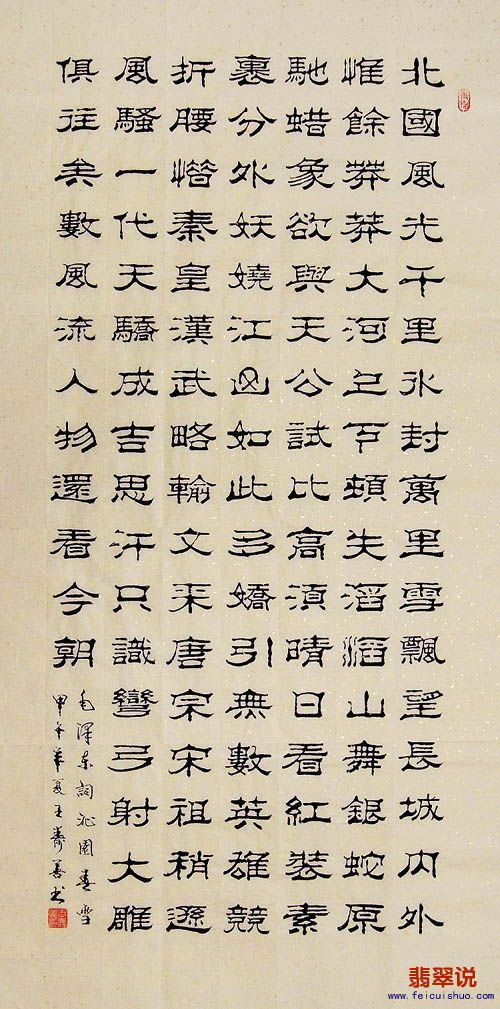 北國風光千里冰封萬里雪飄望長城内外
惟餘莽莽大河上下頓失滔滔山舞銀蛇原
馳蜡象欲與天公試比高須晴日看紅裝素
裹分外妖嬈江山如此多嬌引無數英雄競
折腰惜秦皇漢武略輸文采唐宗宋祖稍遜
風騷一代天驕成吉思汗只識彎弓射大雕
俱往矣數風流人物還看今朝
毛澤东詞沁園春雪
甲午 夏王 善书
翡翠说
www.feicuishuo.com